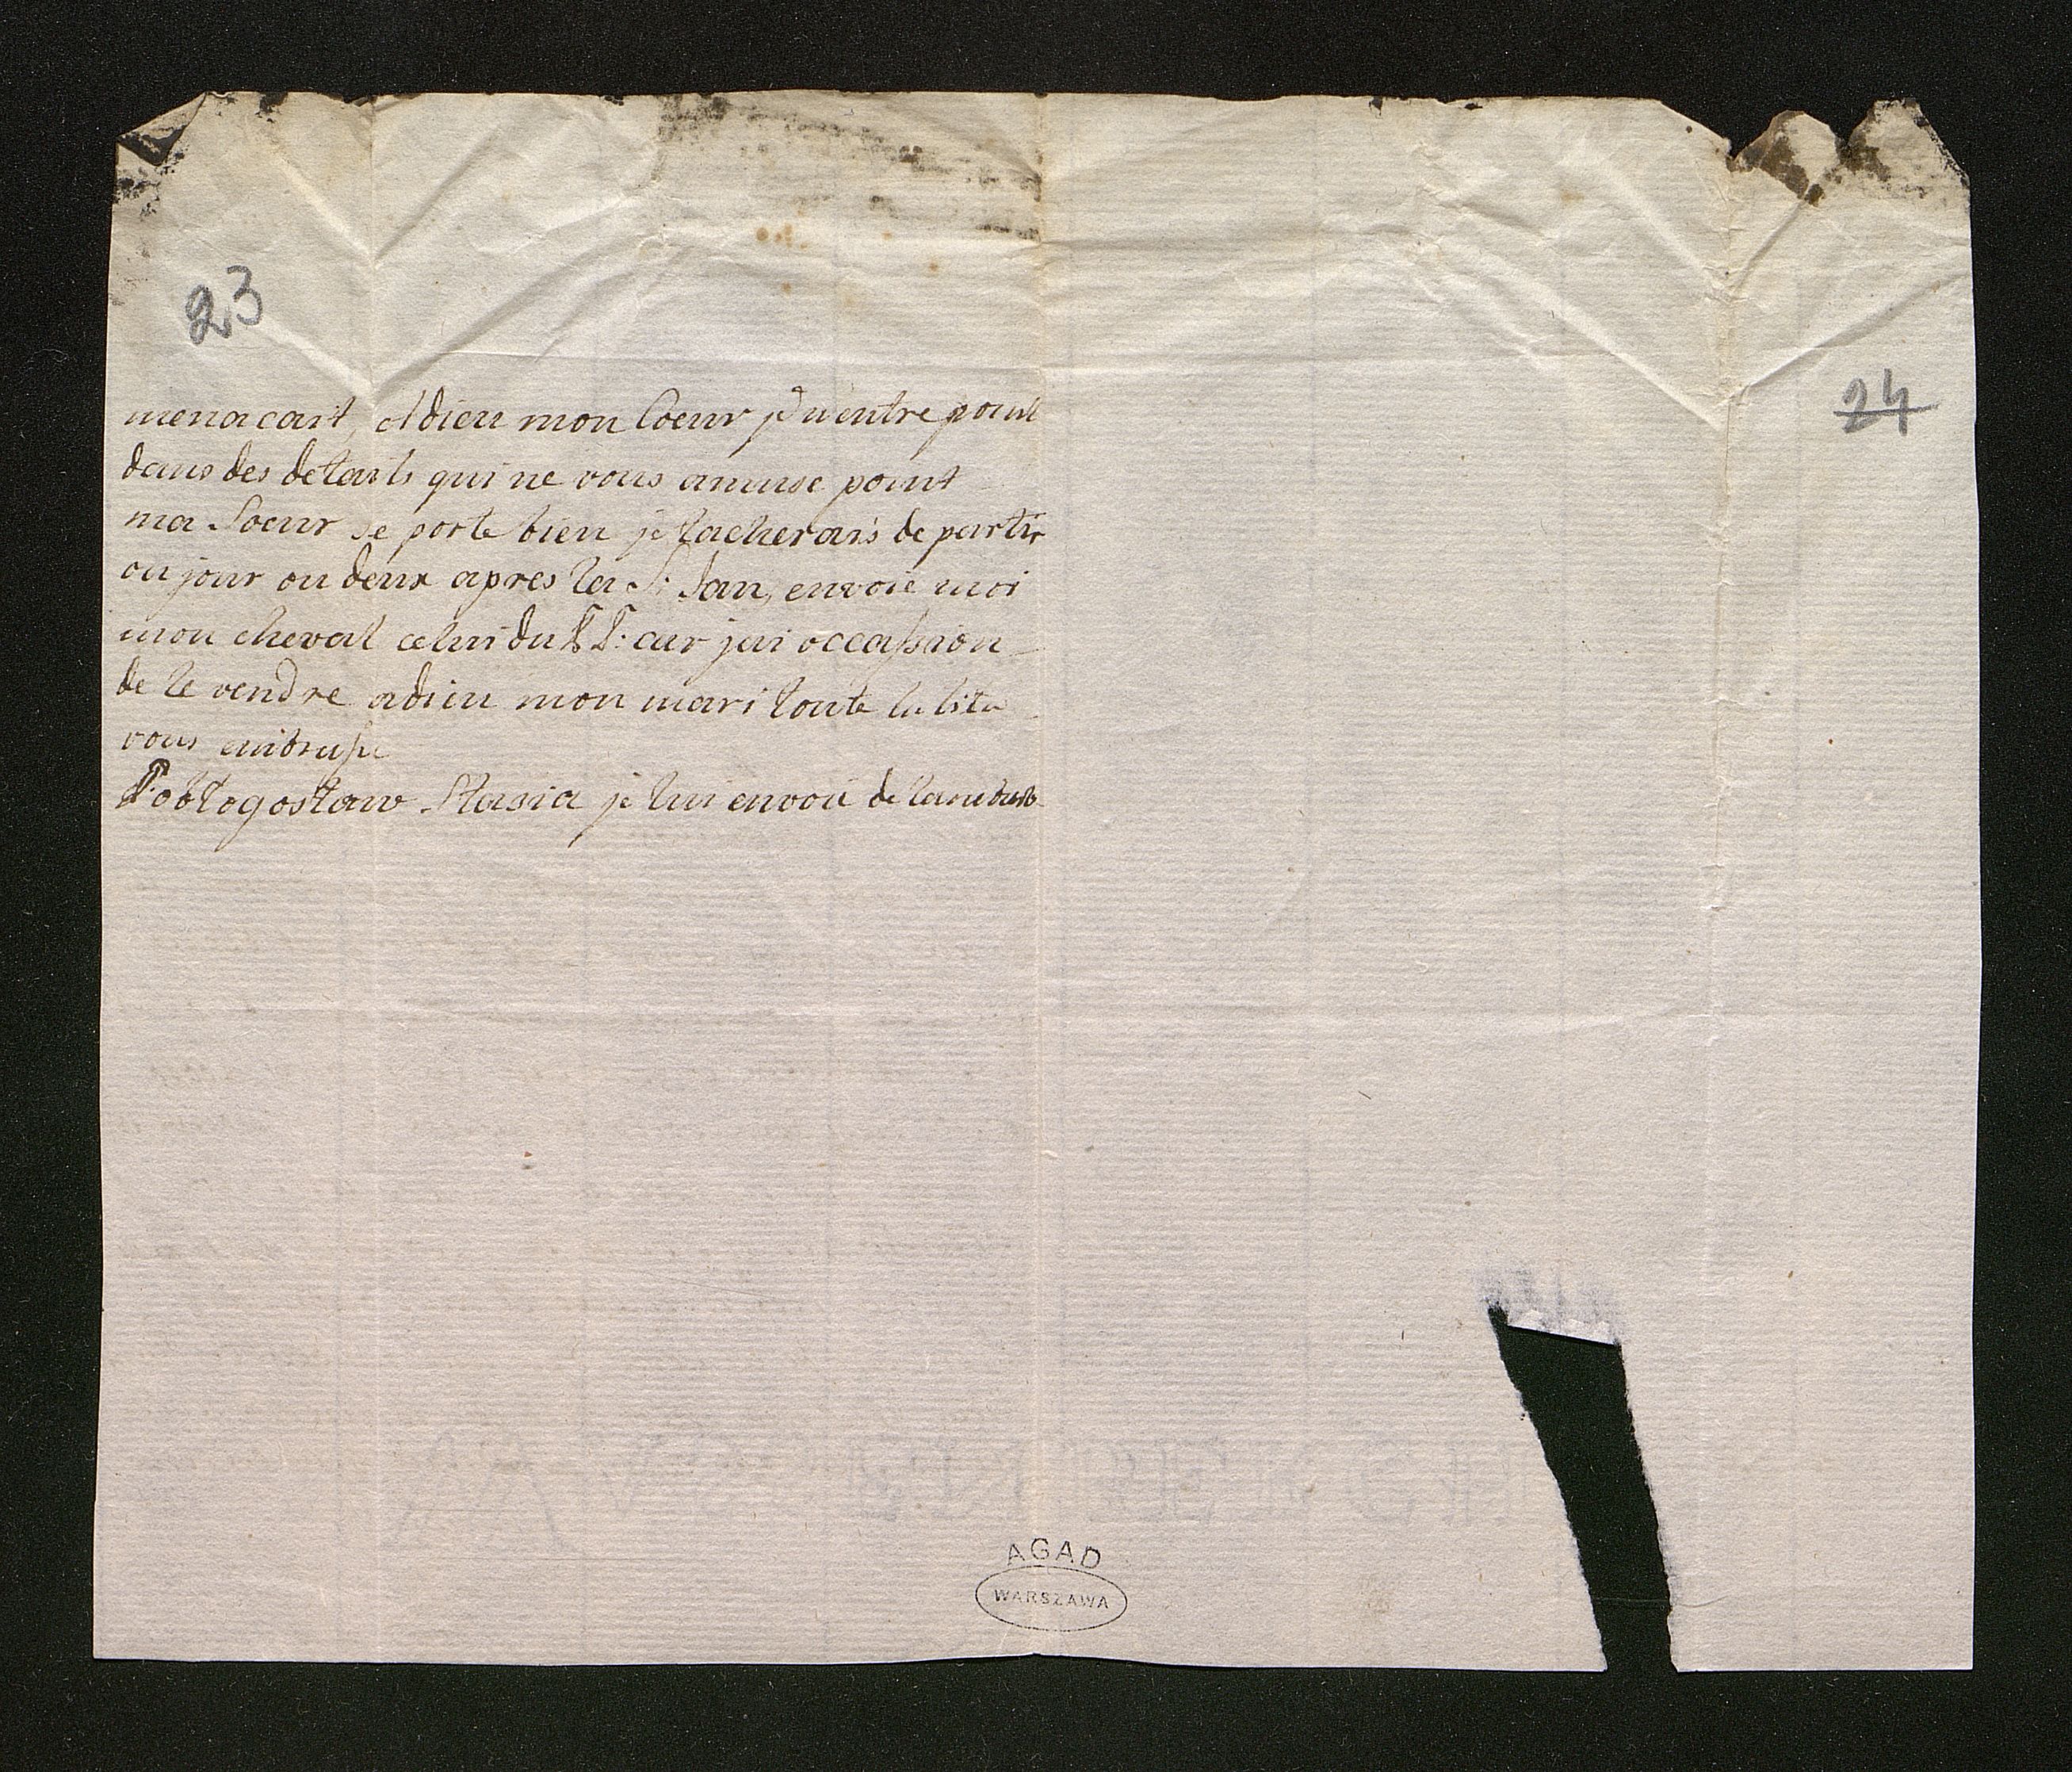 23
menacant, Adieu mon Coeur je n'entre point
dans des details qui ne vous amuse point
ma Soeur se porte bien je tacherais de partir
ou jour ou deux apres la S: Jan, envoie moi
mon cheval celui du car jai occassion
de le vendre adieu mon mari toute la
vous embrasse
Pobłogosław Stasia je lui envoie de
24
AGAD
WARSZAWA